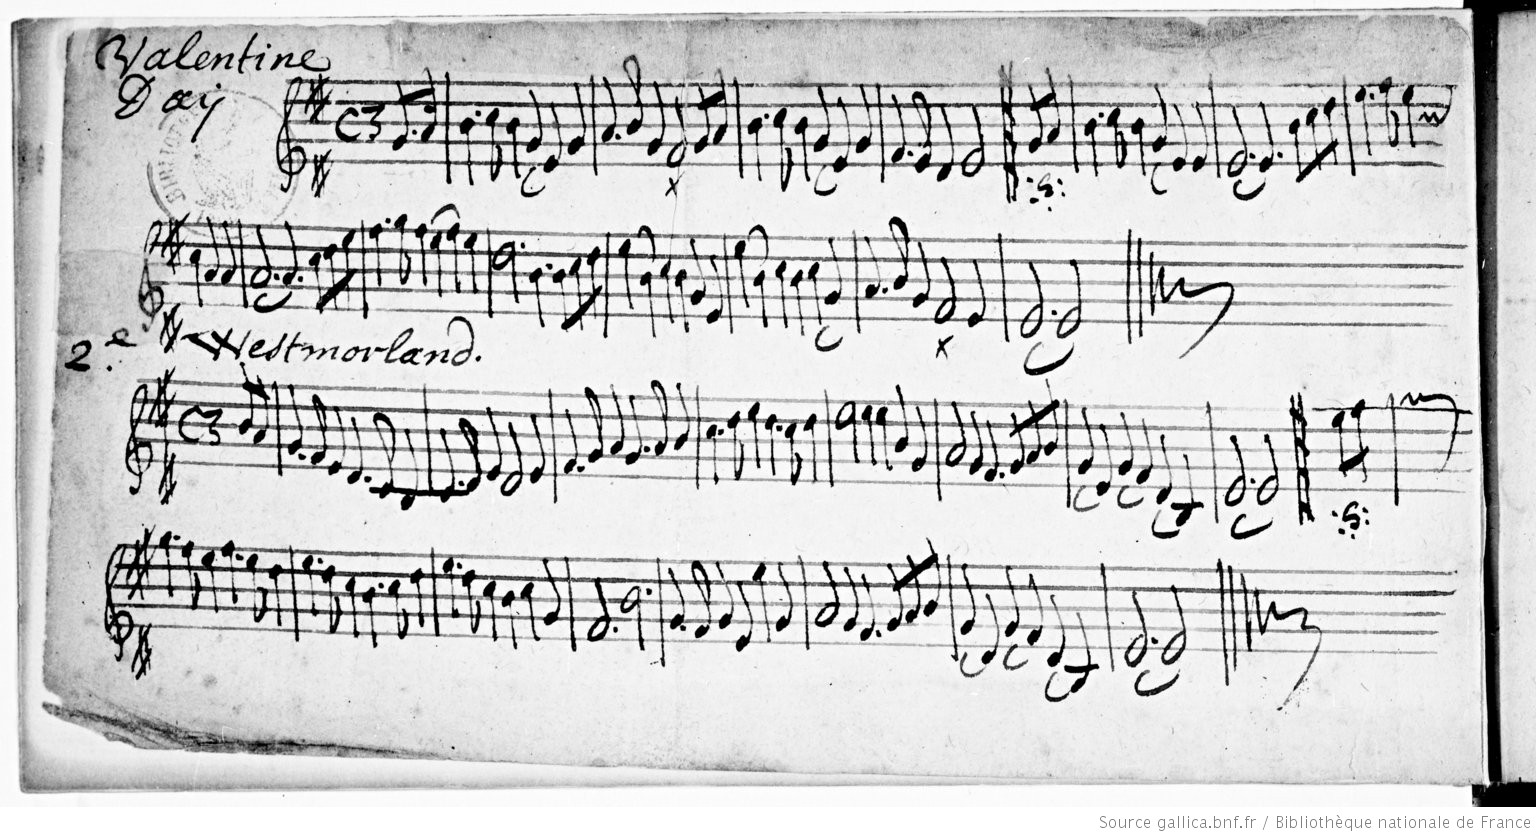 Valentine
Day
C3
2.e Westmorland.
C3
BIBLIOT
Source gallica.bnf.fr / Bibliothèque nationale de France